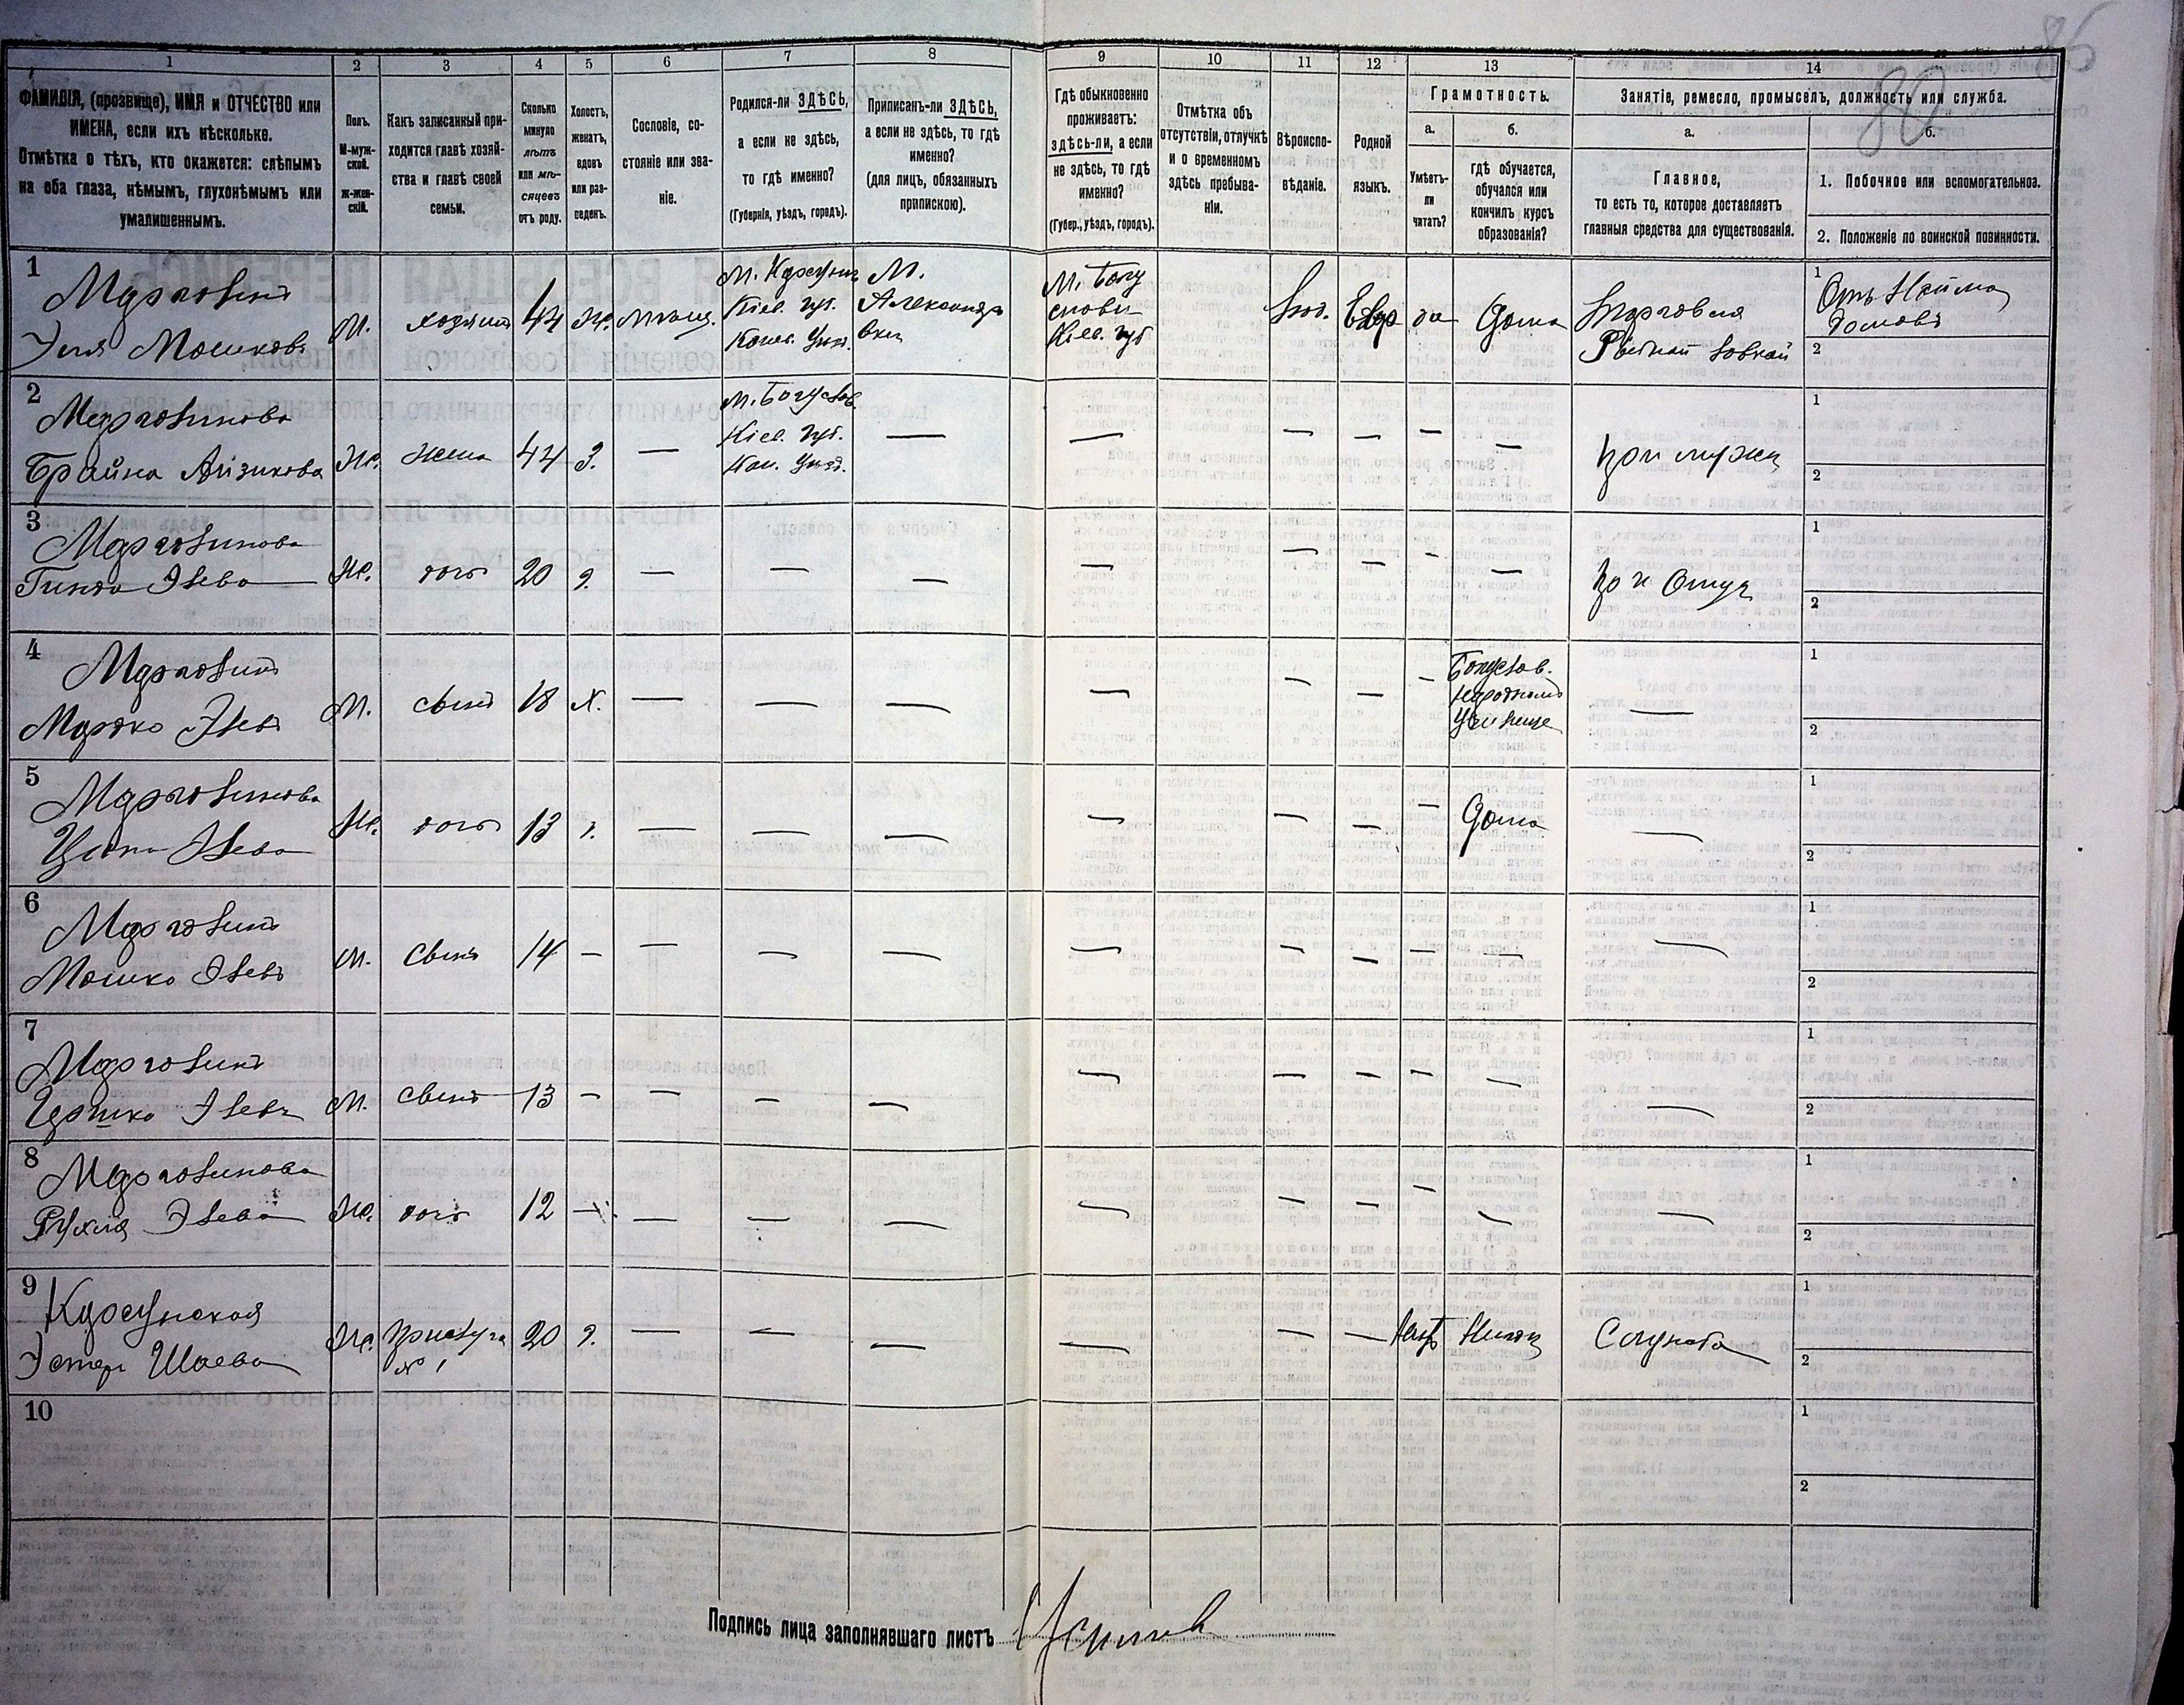 86
80
1
2
3
4
5
6
7
8
9
10
11
12
13
14
ФАМИЛІЯ, (прозвище), ИМЯ и ОТЧЕСТВО или
ИМЕНА, если ихъ нѣсколько.
Отмѣтка о тѣхъ, кто окажется: слѣпымъ
на оба глаза, нѣмымъ, глухонѣмымъ или
умалишеннымъ.
Полъ.
М-муж-
ской.
ж-жен-
скій.
Какъ записанный при-
ходится главѣ хозяй-
ства и главѣ своей
семьи.
Сколько
минуло
лѣтъ
или мѣ-
сяцевъ
отъ роду.
Холостъ,
женатъ,
вдовъ
или раз-
веденъ.
Сословіе, со-
стояніе или зва-
ніе.
Родился-ли ЗДѢСЬ,
а если не здѣсь,
то гдѣ именно?
(Губернія, уѣздъ, городъ).
Приписанъ-ли ЗДѢСЬ,
а если не здѣсь, то гдѣ
именно?
(для лицъ, обязанныхъ
припискою).
Гдѣ обыкновенно
проживаетъ:
здѣсь-ли, а если
не здѣсь, то гдѣ
именно?
(Губер., уѣздъ, городъ).
Отмѣтка объ
отсутствіи, отлучкѣ
и о временномъ
здѣсь пребыва-
ніи.
Вѣроиспо-
вѣданіе.
Родной
языкъ.
Грамотность.
а.
Умѣетъ-
ли
читать?
б.
гдѣ обучается,
обучался или
кончилъ курсъ
образованія?
Занятіе, ремесло, промыселъ, должность или служба.
а.
Главное,
то есть то, которое доставляетъ
главныя средства для существованія.
б.
1. Побочное или вспомогательноа.
2. Положеніе по воинской повинности.
1
Марголинъ
Эля Мошковъ
М. хозяинъ 44 Ж. мѣщ.
М. Корсунь
Кіев. губ.
Канев. Уѣзд.
М.
Александр
вки
М. Богу
славъ
Кіев. губ
Іюд. Евр да Дома
Торговля
Рыбной ловкой
1 Отъ Найма
домовъ
2
2
Марголинова
Брайна Айзикова
Ж. жена 44 З. —
М. Богуслав
Кіев. Губ.
Кан. Уѣзд.
— — — — — —
при мужѣ
1
2
3
Марголинова
Гинда Элева
Ж. дочь 20 д. — — — — — — — —
при Отцѣ
1
2
4
Марголинъ
Мордко Элевъ
М. сынъ 18 Х. — — — — — — —
Богуслав.
народномъ
Училище
—
1
2
5
Марголинова
Элева
Ж. дочь 13 д. — — — — — — — Дома —
1
2
6
Марголинъ
Мошко Элевъ
М. Сынъ 14 — — — — — — — — — —
1
2
7
Марголинъ
Элевъ
М. Сынъ 13 — — — — — — — — — —
1
2
8
Марголинова
Рухля Элева
Ж. дочь 12 — — — — — — — — — —
1
2
9
Корсунская
Эстер Шаева
Ж. Прислуга
№ 1
20 д. — — — — — —
Служба
1
2
10
1
2
Подпись лица заполнявшаго листъ